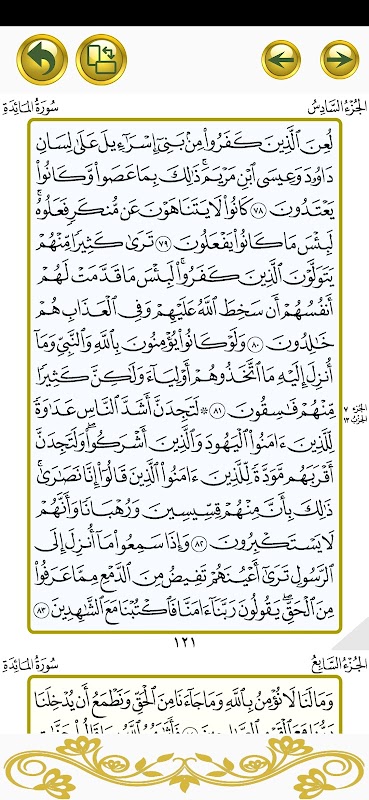 سُورَةُ المَائِدَةِ الجُزْءُ السَّادِسُ
لُعِنَ ٱلَّذِينَ كَفَرُواْ مِنۢ بَنِيٓ إِسۡرَٰٓءِيلَ عَلَىٰ لِسَانِ
دَاوُۥدَ وَعِيسَى ٱبۡنِ مَرۡيَمَۚ ذَٰلِكَ بِمَا عَصَواْ وَّكَانُواْ
يَعۡتَدُونَ ٧٨ كَانُواْ لَا يَتَنَاهَوۡنَ عَن مُّنكَرٖ فَعَلُوهُۚ
لَبِئۡسَ مَا كَانُواْ يَفۡعَلُونَ ٧٩ تَرَىٰ كَثِيرٗا مِّنۡهُمۡ
يَتَوَلَّوۡنَ ٱلَّذِينَ كَفَرُواْۚ لَبِئۡسَ مَا قَدَّمَتۡ لَهُمۡ
أَنفُسُهُمۡ أَن سَخِطَ ٱللَّهُ عَلَيۡهِمۡ وَفِي ٱلۡعَذَابِ هُمۡ
خَٰلِدُونَ ٨٠ وَلَوۡ كَانُواْ يُؤۡمِنُونَ بِٱللَّهِ وَٱلنَّبِيِّ وَمَآ
أُنزِلَ إِلَيۡهِ مَا ٱتَّخَذُوهُمۡ أَوۡلِيَآءَ وَلَٰكِنَّ كَثِيرٗا
مِّنۡهُمۡ فَٰسِقُونَ ٨١ ۞ لَتَجِدَنَّ أَشَدَّ ٱلنَّاسِ عَدَٰوَةٗ
الجزء ٧
الحزب ١٣
لِّلَّذِينَ ءَامَنُواْ ٱلۡيَهُودَ وَٱلَّذِينَ أَشۡرَكُواْۖ وَلَتَجِدَنَّ
أَقۡرَبَهُم مَّوَدَّةٗ لِّلَّذِينَ ءَامَنُواْ ٱلَّذِينَ قَالُوٓاْ إِنَّا نَصَٰرَىٰۚ
ذَٰلِكَ بِأَنَّ مِنۡهُمۡ قِسِّيسِينَ وَرُهۡبَانٗا وَأَنَّهُمۡ
لَا يَسۡتَكۡبِرُونَ ٨٢ وَإِذَا سَمِعُواْ مَآ أُنزِلَ إِلَى
ٱلرَّسُولِ تَرَىٰٓ أَعۡيُنَهُمۡ تَفِيضُ مِنَ ٱلدَّمۡعِ مِمَّا عَرَفُواْ
مِنَ ٱلۡحَقِّۖ يَقُولُونَ رَبَّنَآ ءَامَنَّا فَٱكۡتُبۡنَا مَعَ ٱلشَّٰهِدِينَ ٨٣
١٢١
سُورَةُ المَائِدَةِ الجُزْءُ السَّابِعُ
وَمَا لَنَا لَا نُؤۡمِنُ بِٱللَّهِ وَمَا جَآءَنَا مِنَ ٱلۡحَقِّ وَنَطۡمَعُ أَن يُدۡخِلَنَا